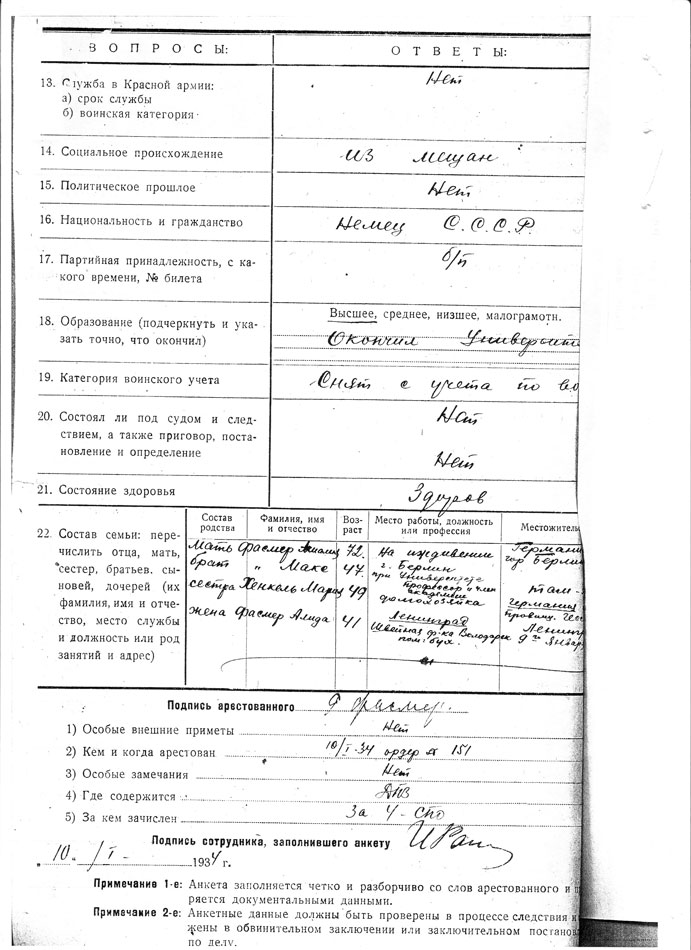 ВОПРОСЫ: ОТВЕТЫ:
13. Служба в Красной армии: Нет
а) срок службы
б) воинская категория
14. Социальное происхождение из мещан
15. Политическое прошлое Нет
16. Национальность и гражданство Немец С.С.С.Р.
17. Партийная принадлежность, с ка- б/п
кого времени, № билета
Высшее, среднее, низшее, малограмотн.
18. Образование (подчеркнуть и ука-
зать точно, что окончил) Окончил Университе
19. Категория воинского учета Снят с учета по во
20. Состоял ли под судом и след- Нет
ствием, а также приговор, поста-
новление и определение Нет
21. Состояние здоровья Здоров
Состав родства Фамилия, имя и отчество Воз-раст Место работы, должность или профессия Местожитель
22. Состав семьи: пере-
числить отца, мать,
сестер, братьев, сы-
новей, дочерей (их
фамилия, имя и отче-
ство, место службы
и должность или род
занятий и адрес)
Мать Фасмер Амалия 72 На иждивении Германи
гор Берли
брат " Макс 47 г. Берлин
при Университете
профессор и член
академии Там
сестра Хенкель Мария 49 домохозяйка Германия
жена Фасмер Алида 41 Ленинград Ленингр
Швейная ф-ка Володарск 9го Январ
пом. бух.
Подпись арестованного Р Фасмер.
1) Особые внешние приметы Нет
2) Кем и когда арестован 10/I-34 ордер № 151
3) Особые замечания Нет
4) Где содержится ДПЗ
5) За кем зачислен За 4-СПО
Подпись сотрудника, заполнившего анкету
10. /I- 1934 г.
Примечание 1-е: Анкета заполняется четко и разборчиво со слов арестованного и п
ряется документальными данными.
Примечание 2-е: Анкетные данные должны быть проверены в процессе следствия и
жены в обвинительном заключении или заключительном постанов
по делу.